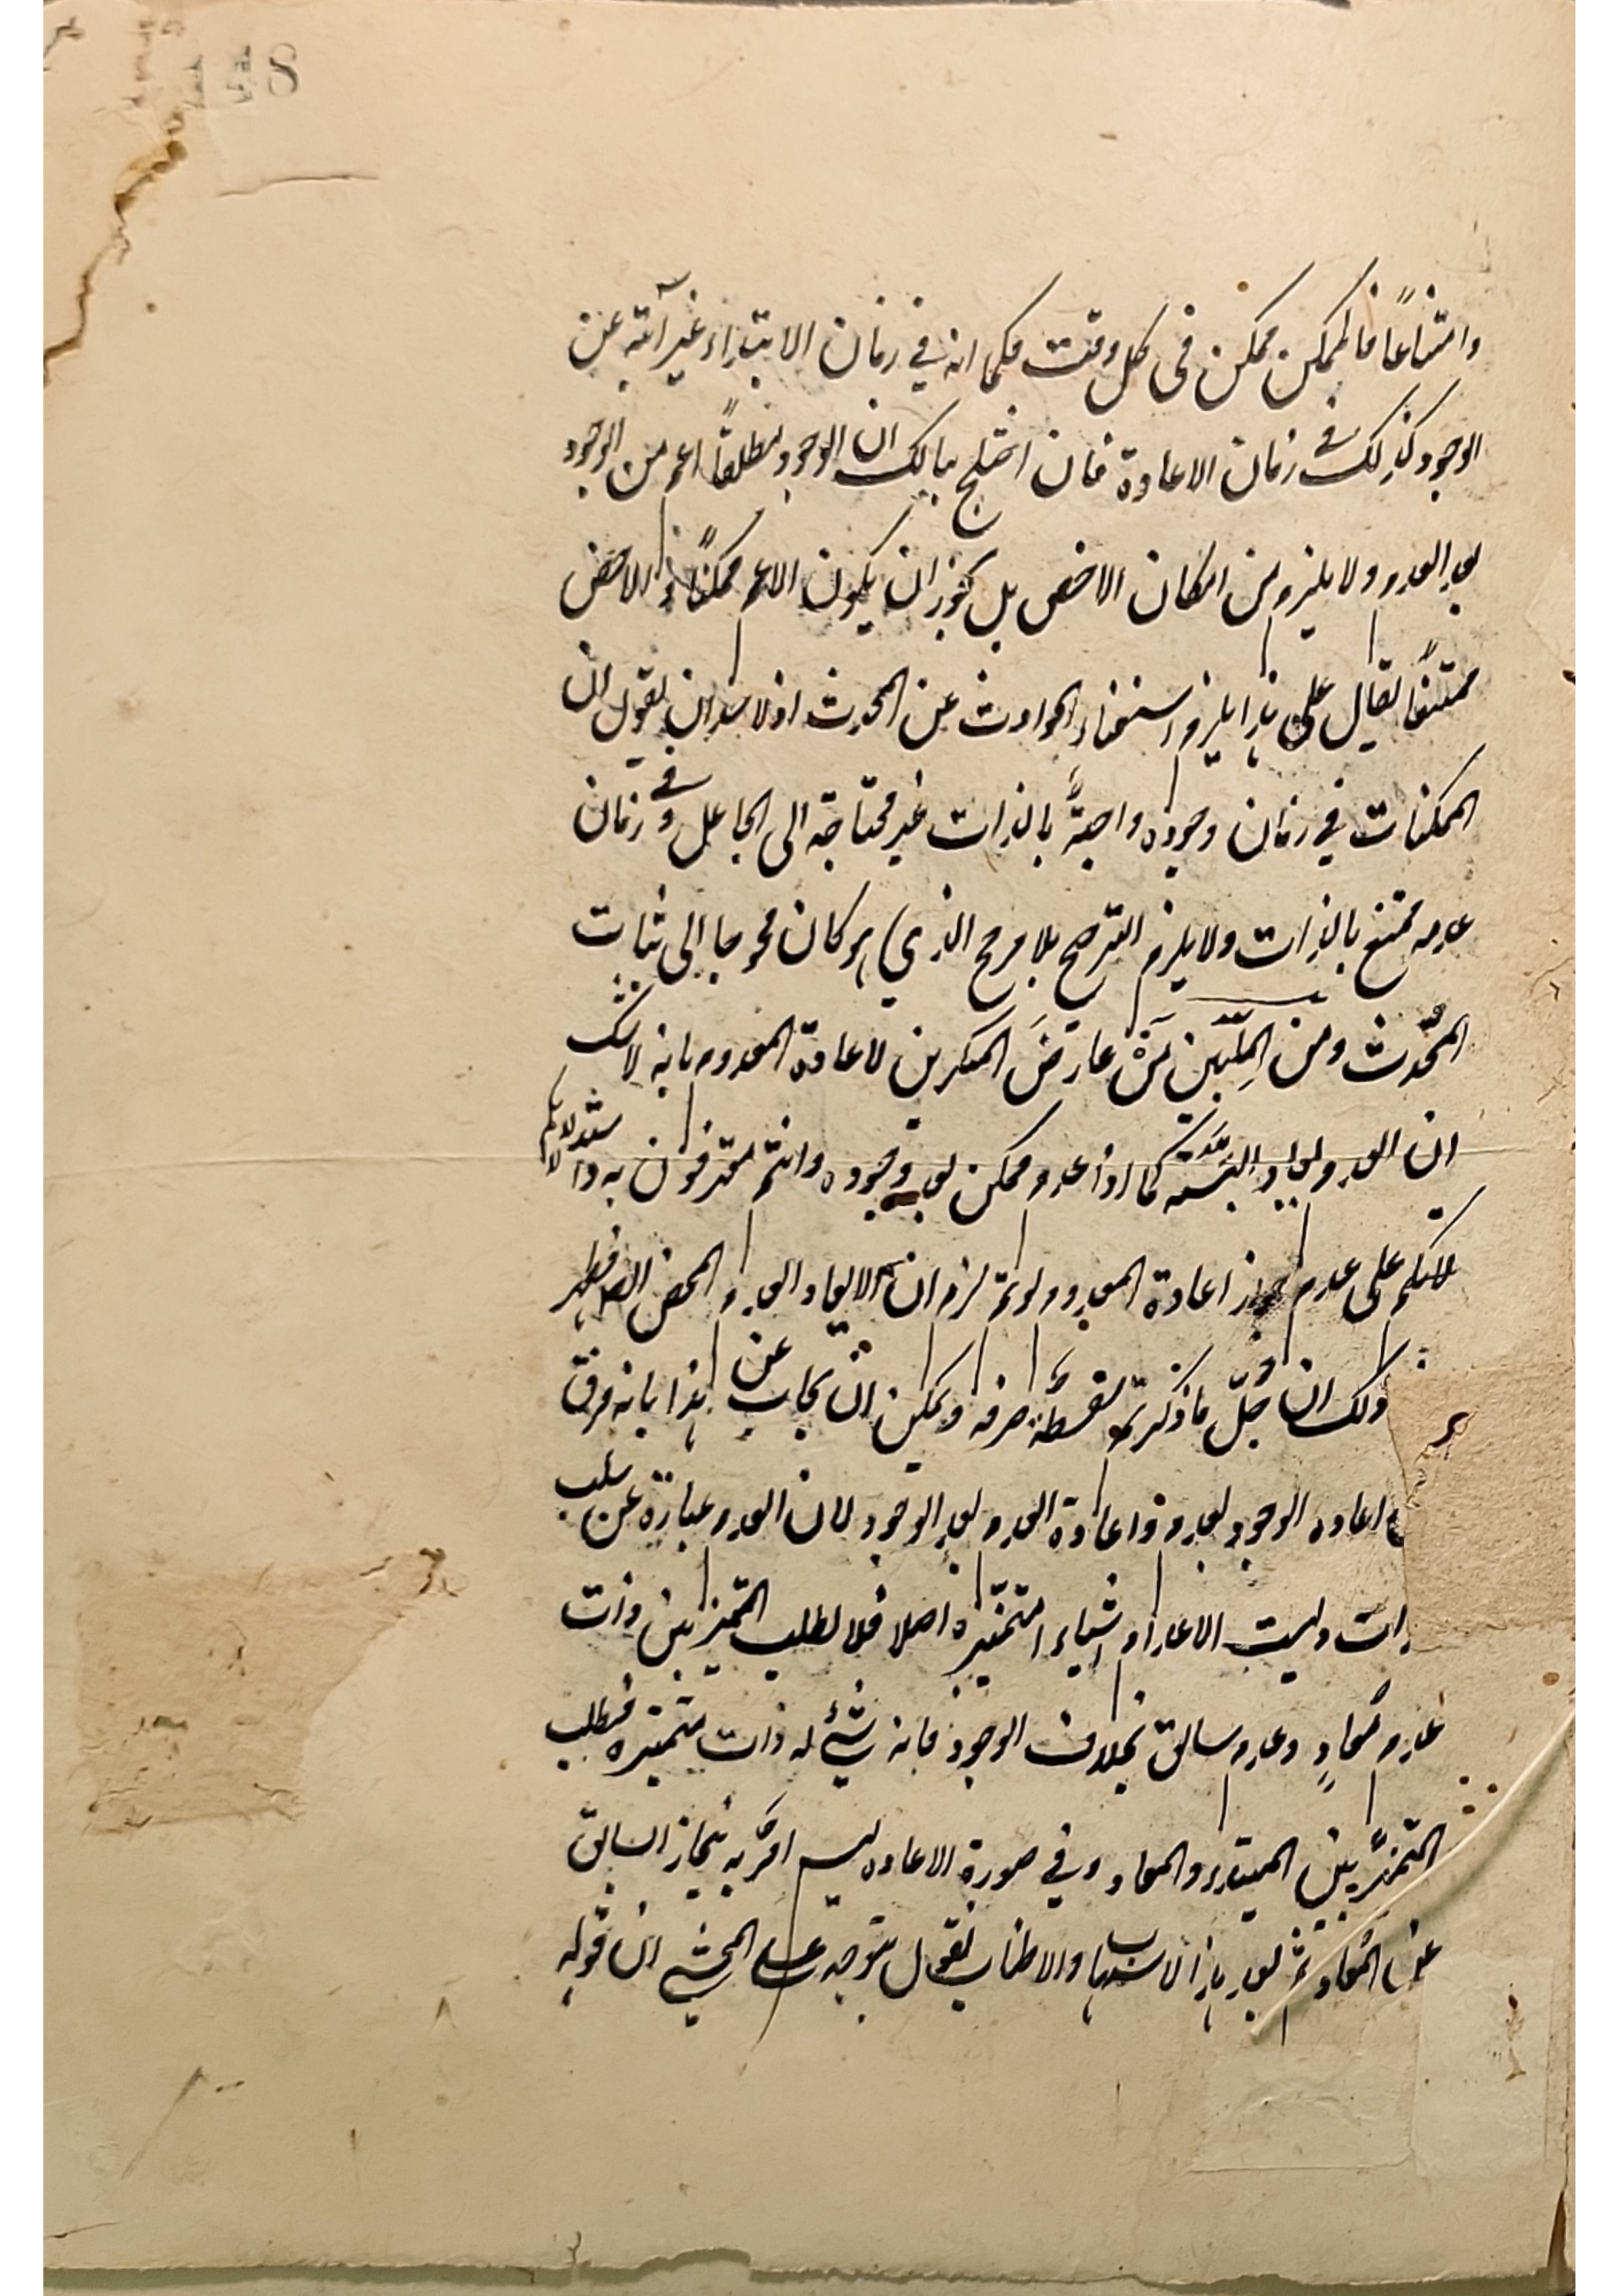 وامتناعًا فالممكن ممكن في كل وقت فكما انه في زمان الابتداء غير آبية عن
الوجود كذلك في زمان الاعادة فان اختلج ببالك ان الوجود مطلقاً اعم من الوجود
بعد العدم ولا يلزم من امكان الاخص بل يجوز ان يكون الاعم ممكنًا والاخص
ممتنعًا يقال على هذا يلزم استغناء الحوادث عن المحدث اذ لا بد ان يقول ان
الممكنات في زمان وجوده واجبةً بالذات غير محتاجة الى الجاعل وفي زمان
عدمه ممتنع بالذات ولا يلزم الترجيح بلا مرجح الذي هو كان محوجا الى اثبات
المحدث ومن المليين من عارض المنكرين لاعادة المعدوم بانه لا شك
ان العدم يعاد البتة كما اذا عدم ممكن بعد وجوده وانتم معترفون به واستدلالكم
على عدم جواز اعادة المعدوم لو تم لزم ان لا يعاد العدم المحض الصرف فظهر
ذلك ان جل ما ذكرتم سفسطة صرفه ويمكن ان يجاب عن هذا بانه فرق
اعاده الوجود بعدم واعادة العدم بعد الوجود لان العدم عبارة عن سلب
ذات وليست الاعدام اشياء متميزه اصلا فلا يطلب التميز بين ذات
عدم معادٍ وعدم سابق بخلاف الوجود فانه شيء له ذات متميزه فيطلب
التميز بين المبتدء والمعاد وفي صورة الاعاده ليس امر به ينحاز السابق
عن المعاد ثم بعد هذا الاسهاب والاطناب نقول يتوجه على المحشي ان قوله